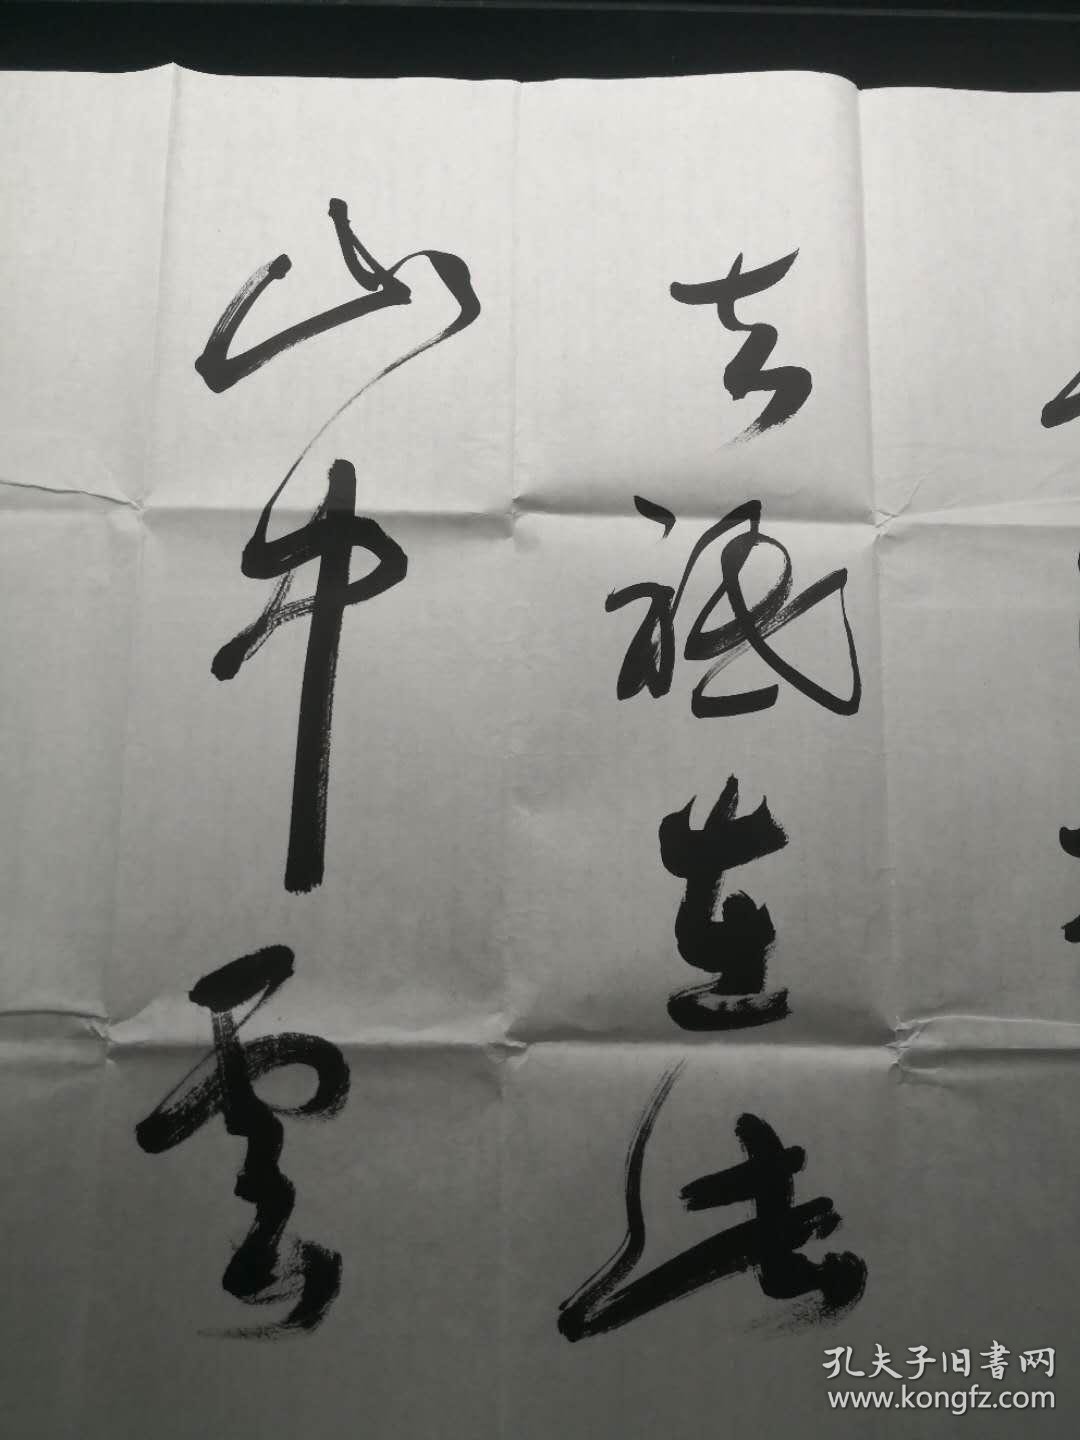 去祗在此
山中雲
孔夫子旧書网
www.kongfz.com